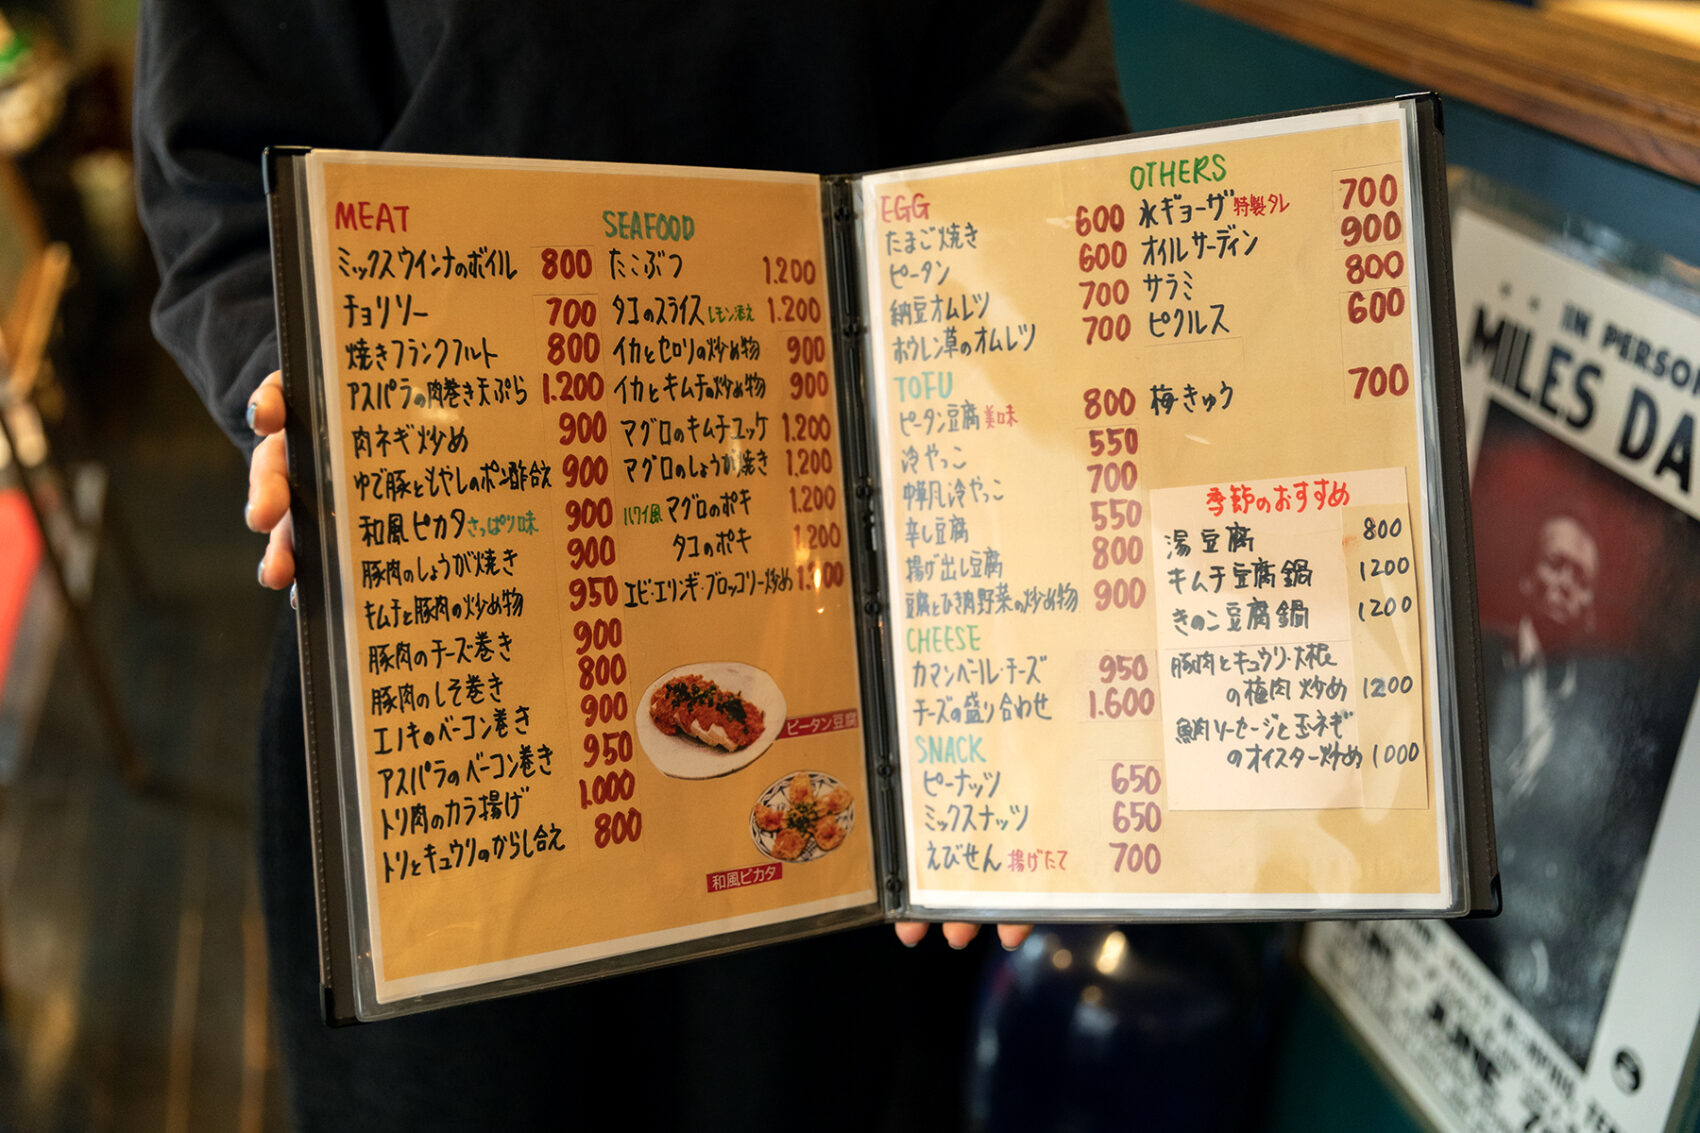 MEAT
ミックスウインナのボイル 800
チョリソー 700
焼きフランクフルト 800
アスパラの肉巻き天ぷら 1.200
肉ネギ炒め 900
ゆで豚ともやしのポン酢合え 900
和風ピカタ さっぱり味 900
豚肉のしょうが焼き 900
キムチと豚肉の炒め物 950
豚肉のチーズ巻き 900
豚肉のしそ巻き 800
エノキのベーコン巻き 900
アスパラのベーコン巻き 950
トリ肉のカラ揚げ 1.000
トリとキュウリのからし合え 800
SEAFOOD
たこぶつ 1.200
タコのスライス レモン添え 1.200
イカとセロリの炒め物 900
イカとキムチの炒め物 900
マグロのキムチユッケ 1.200
マグロのしょうが焼き 1.200
ハワイ風 マグロのポキ 1.200
タコのポキ 1.200
エビ・エリンギ・ブロッコリー炒め
ピータン豆腐
和風ピカタ
EGG
たまご焼き 600
ピータン 600
納豆オムレツ 700
ホウレン草のオムレツ 700
TOFU
ピータン豆腐 美味 800
冷やっこ 550
中華風冷やっこ 700
辛し豆腐 550
揚げ出し豆腐 800
豆腐とひき肉野菜の炒め物 900
CHEESE
カマンベール・チーズ 950
チーズの盛り合わせ 1.600
SNACK
ピーナッツ 650
ミックスナッツ 650
えびせん 揚げたて 700
OTHERS
水ギョーザ 特製タレ 700
オイルサーディン 900
サラミ 800
ピクルス 600
梅きゅう 700
季節のおすすめ
湯豆腐 800
キムチ豆腐鍋 1200
きのこ豆腐鍋 1200
豚肉とキュウリ・大根
の梅肉炒め 1200
魚肉ソーセージと玉ネギ
のオイスター炒め 1000
IN PERSON
MILES DA
JUNE